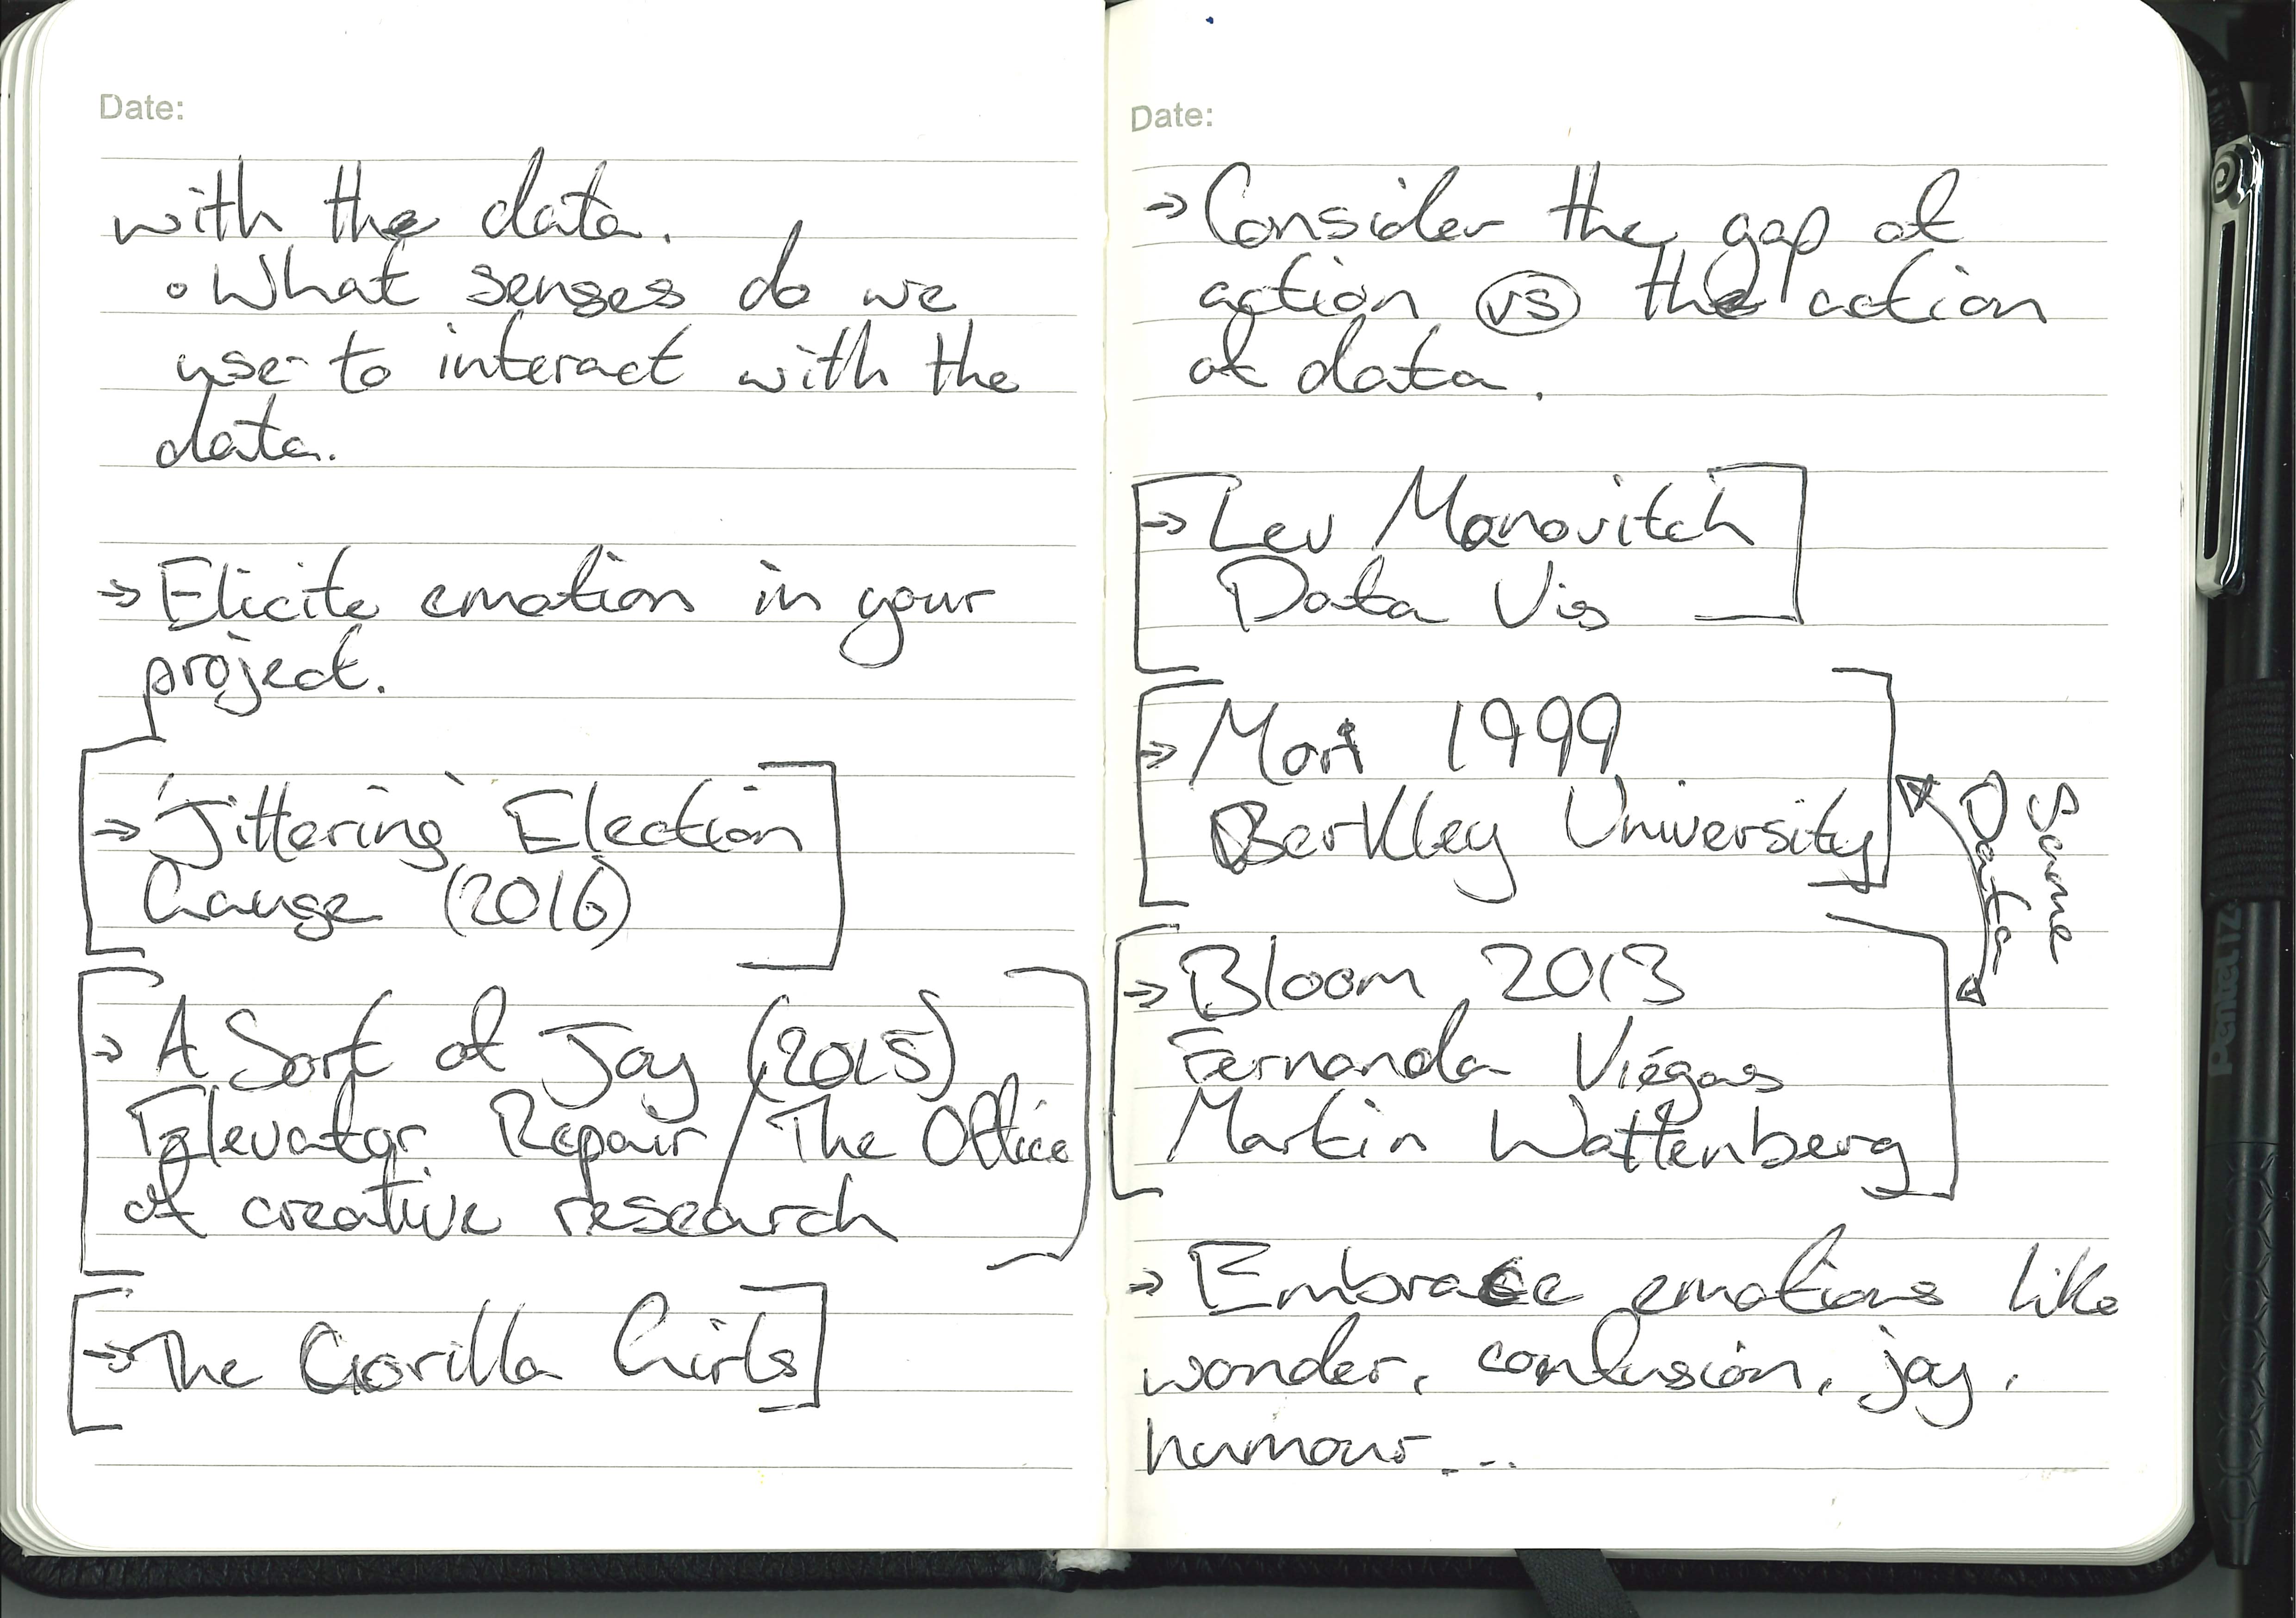 Date:
with the data.
• What senses do we
use to interact with the
data.
→ Elicite emotion in your
project.
→ 'Jittering' Election
Gauge (2016)
→ A Sort of Joy (2015)
Elevator Repair / The Office
of creative research
→ The Gorilla Girls
Date:
→ Consider the gap of
action vs the action
of data.
→ Lev Manovitch
Data Vis
→ Mori 1999
Berkley University
Same
Data
→ Bloom 2013
Fernanda Viégas
Martin Wattenberg
→ Embrace emotions like
wonder, confusion, joy,
humour...
Pentel